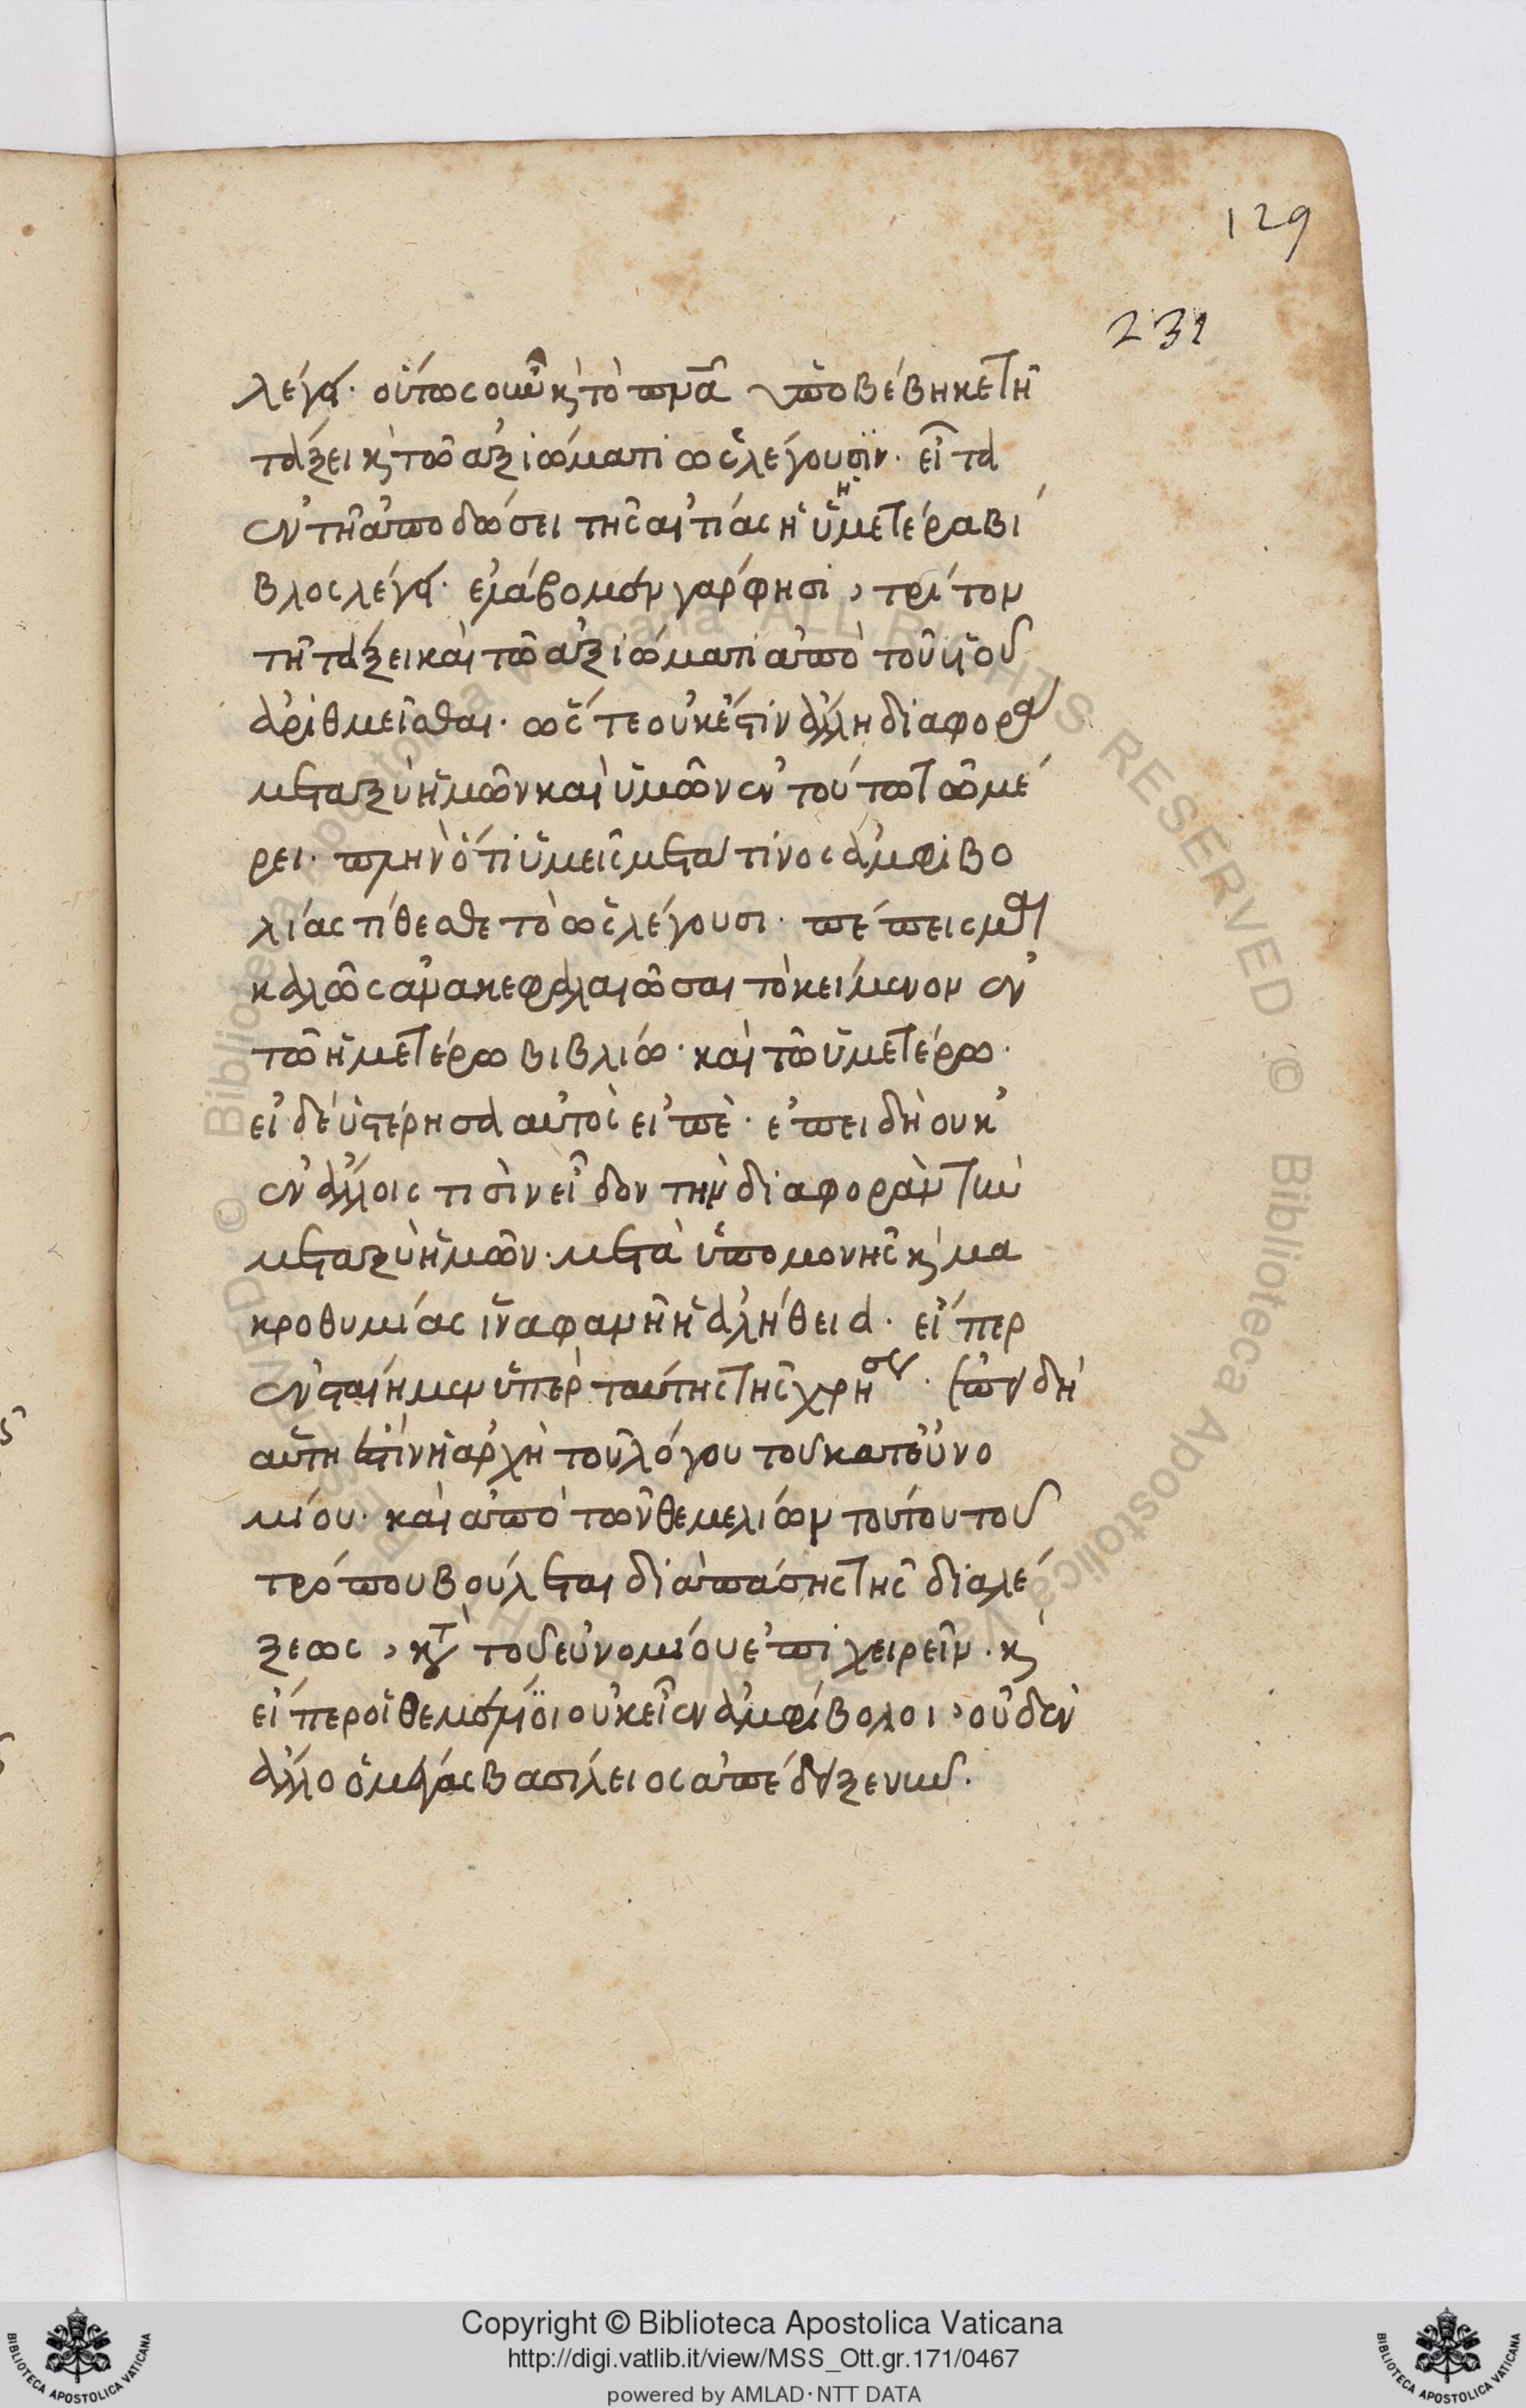 129
231
λέγει· οὕτως οὖν κ̀ τὸ πνᾶ ὑποβέβηκε τῆ
τάξει κ̀ τῶ ἀξιώματι ὡς λέγουσϊν. εἶτα
ἐν τῆ ἀποδώσει τῆς αἰτίας ἡ ὑμετέρα βί
βλος λέγει· ἐλάβομεν γὰρ φησί, τρίτον
τῆ τάξει καὶ τῶ ἀξιώματι ἀπὸ τοῦ υἱοῦ
ἀριθμεῖσθαι. ὥς τε οὐκέστιν ἄλλη διαφορὰ
μεταξὺ ἡμῶν καὶ ὑμῶν ἐν τούτω τῶ μέ
ρει· πλὴν ὅτι ὑμεῖς μετά τινος ἀμφιβο
λίας τίθεσθε τὸ ὡς λέγουσι· πέπεισμαι
καλῶς ἀνακεφαλαιῶσαι τὸ κείμενον ἐν
τῶ ἡμετέρω βιβλίω· καὶ τῶ ὑμετέρω·
εἰ δὲ ὑστέρησα αὐτὸς εἰπὲ· ἐπειδὴ οὐκ
ἐν ἄλλοις τισὶν εἶδον τὴν διαφορὰν τὴν
μεταξὺ ἡμῶν· μετὰ ὑπομονῆς κ̀ μα
κροθυμίας ἵνα φανῆ ἡ ἀλήθεια. εἴπερ
ἐνσταίημεν ὑπὲρ ταύτης τῆς χρήσεως· ἐπὰν δὴ
αὕτη ἐστὶν ἡ ἀρχὴ τοῦ λόγου τοῦ κατ' εὐνο
μίου· καὶ ἀπὸ τῶν θεμελίων τούτου τοῦ
τρόπου βούλεται διαπάσης τῆς διαλέ
ξεως, κατὰ τοῦ εὐνομίου ἐπιχειρεῖν. κ̀
εἴπερ οἱ θεμέλϊοι οὐκ εἶεν ἀμφίβολοι, οὐδὲν
ἄλλο ὁ μέγας βασίλειος ἀπέδειξεν
Copyright © Biblioteca Apostolica Vaticana
http://digi.vatlib.it/view/MSS_Ott.gr.171/0467
powered by AMLAD·NTT DATA